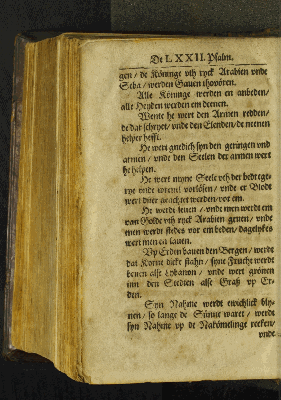 De LXXII. Psalm.
gen / de Köninge vth ryck Arabien vnde
Seba / werden Gauen thovören.
Alle Köninge werden en anbeden /
alle Heyden werden em deenen.
Wente he wert den Armen redden /
de dar schryet / vnde den Elenden / de neenen
helper hefft.
He wert gnedich syn den geringen vnd
armen / vnde den Seelen der armen wert
he helpen.
He wert erer Seele vth der bedrege-
rye vnde vorlösen / vnde er Blodt
wert düer geachtet werden / vor em.
He werdt leuen / vnde men werdt em
van Golde vth ryck Arabien geuen / vnde
men werdt stedes vor em beden / dagelykes
wert men en lauen.
Vp Erden bauen den Bergen / werdt
dat Korne dicke stahn / syne Frucht werdt
beuen alse Lybanon / vnde wert grönen
inn den Steden alse Graß vp Er-
den.
Syn Nahme werdt ewichlick bly-
uen / so lange de Sünne waret / werdt
syn Nahme vp de Nakömelinge recken /
vnde